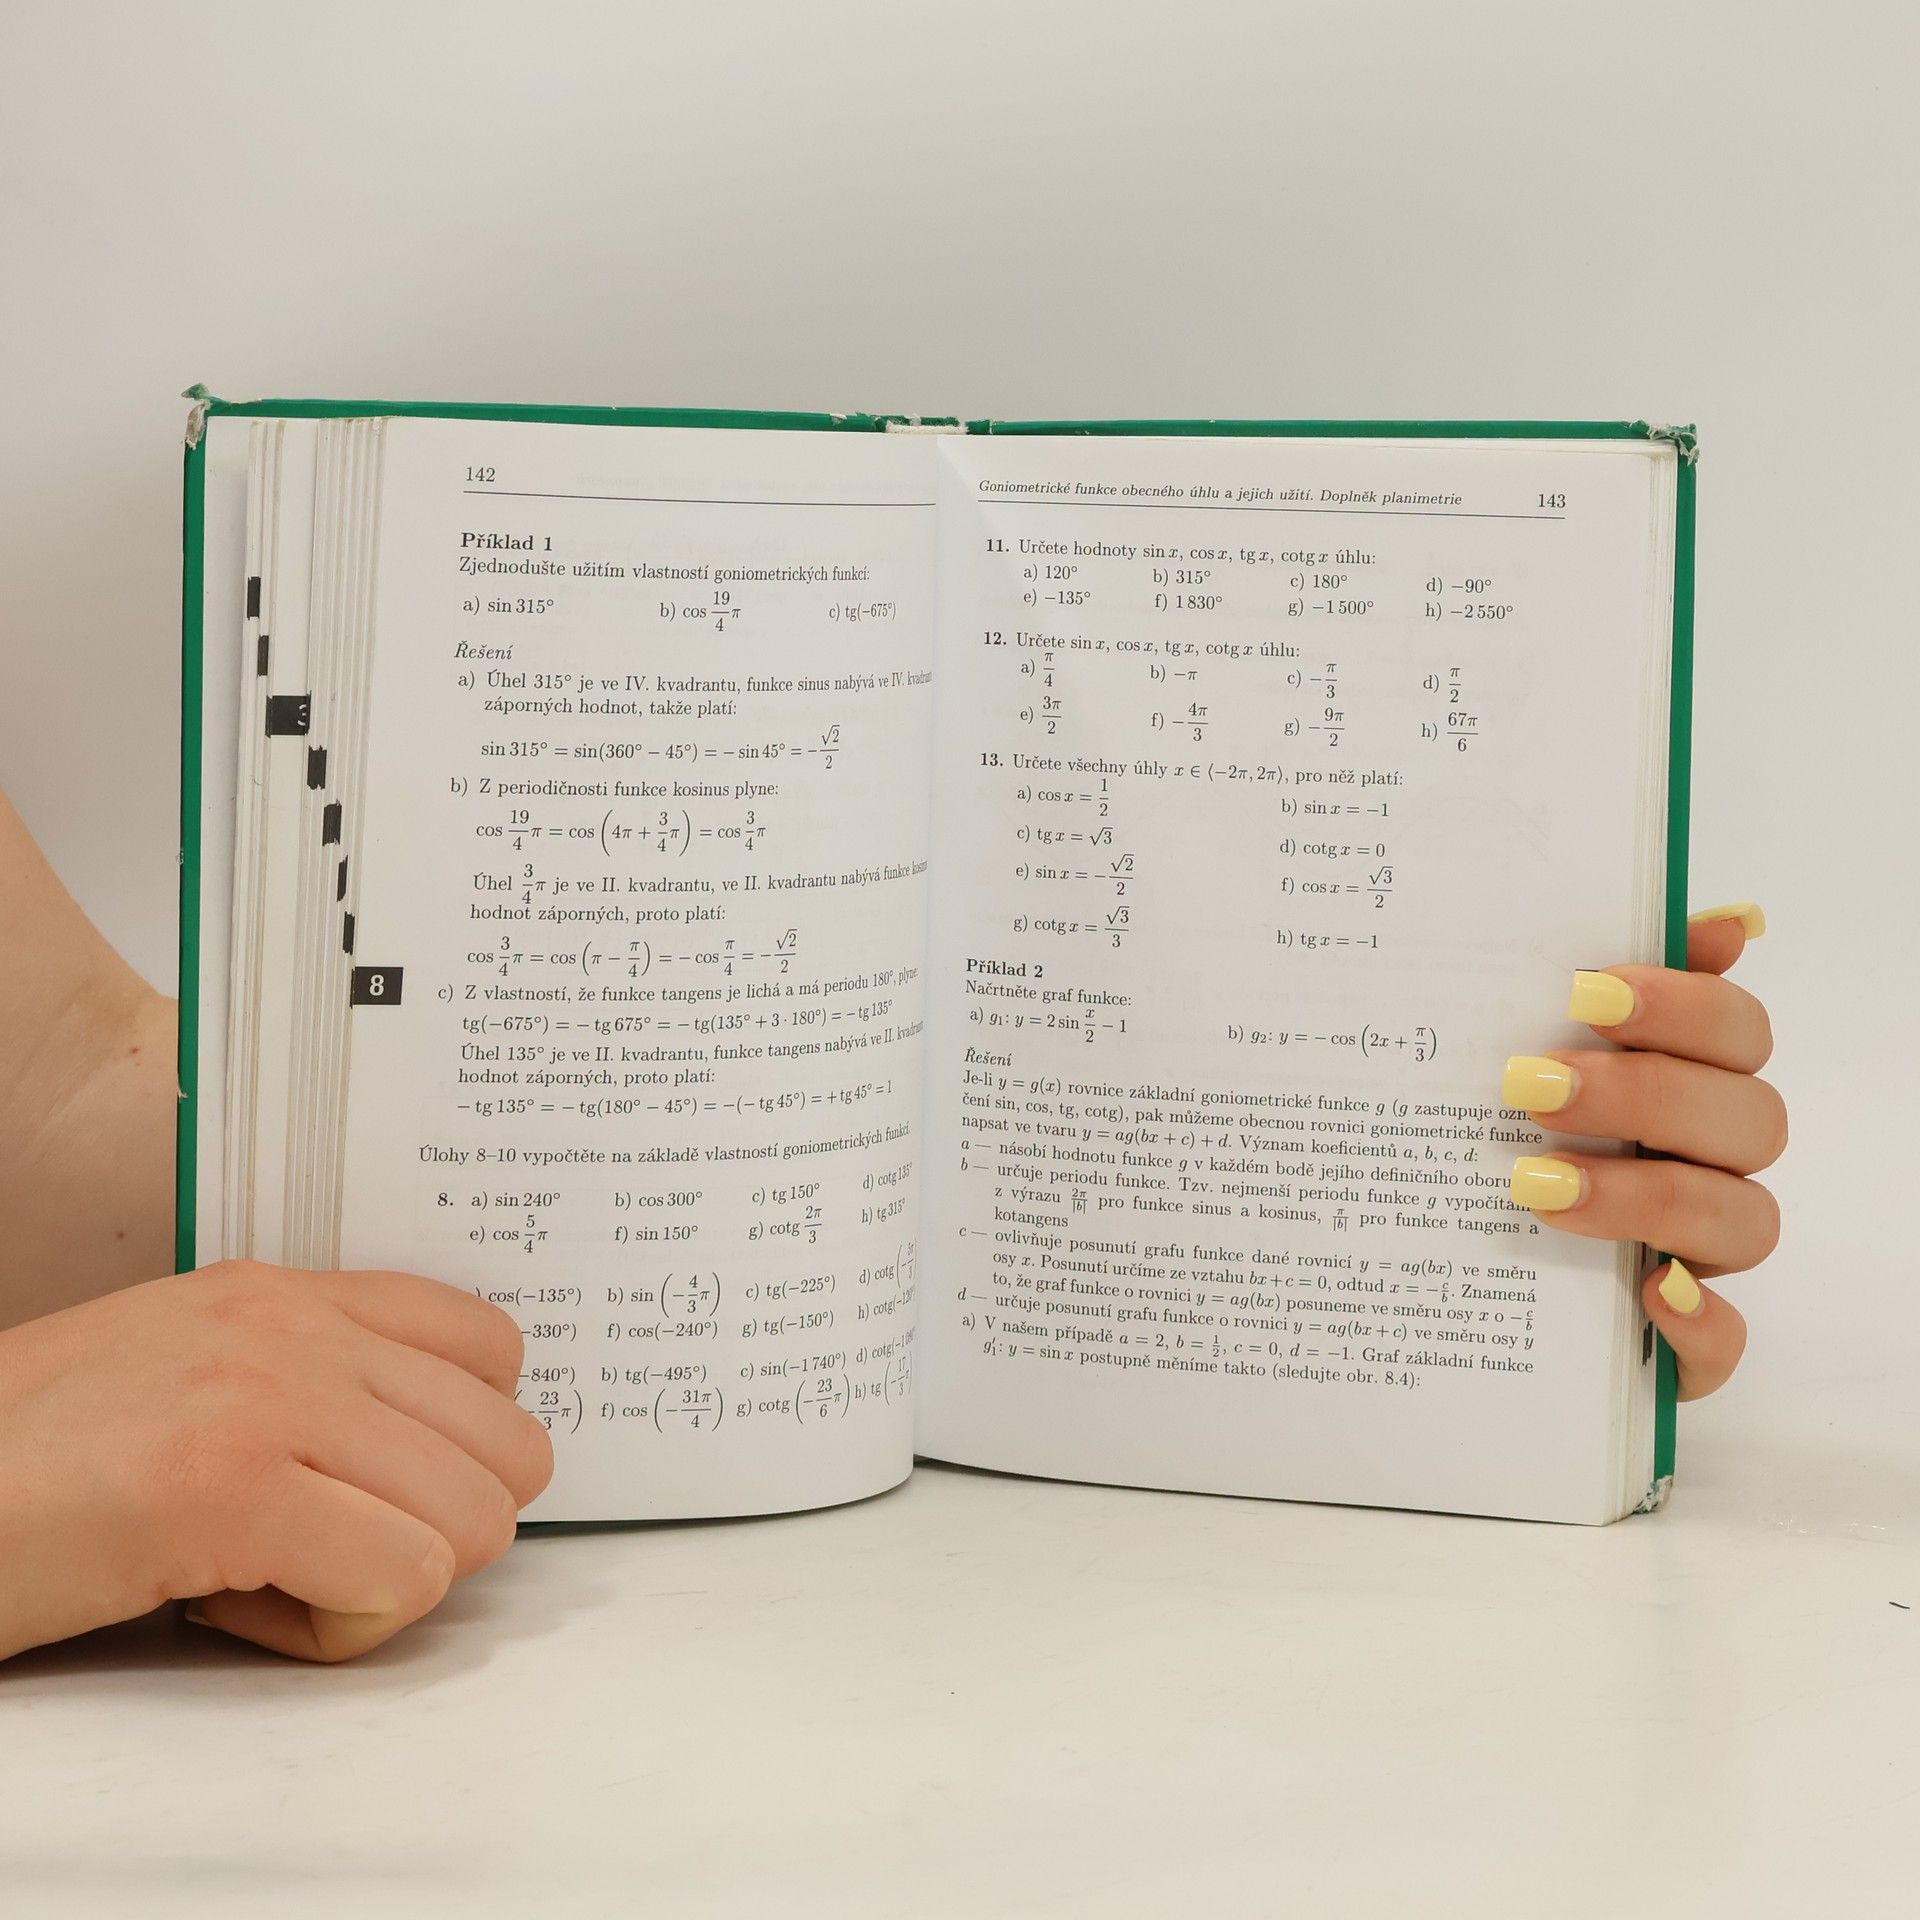 142
Příklad 1
Zjednodušte užitím vlastností goniometrických funkcí:
a) sin 315° b) cos 19/4 π c) tg(−675°)
Řešení
a) Úhel 315° je ve IV. kvadrantu, funkce sinus nabývá ve IV.
záporných hodnot, takže platí:
sin 315° = sin(360° − 45°) = − sin 45° = −√2/2
b) Z periodičnosti funkce kosinus plyne:
cos 19/4 π = cos (4π + 3/4 π) = cos 3/4 π
Úhel 3/4 π je ve II. kvadrantu, ve II. kvadrantu nabývá funkce
hodnot záporných, proto platí:
cos 3/4 π = cos (π − π/4) = − cos π/4 = −√2/2
8
c) Z vlastností, že funkce tangens je lichá a má periodu 180°, plyne:
tg(−675°) = − tg 675° = − tg(135° + 3 · 180°) = − tg 135°
Úhel 135° je ve II. kvadrantu, funkce tangens nabývá ve II.
hodnot záporných, proto platí:
− tg 135° = − tg(180° − 45°) = −(− tg 45°) = + tg 45° = 1
Úlohy 8–10 vypočtěte na základě vlastností goniometrických funkcí.
8. a) sin 240° b) cos 300° c) tg 150° d) cotg 135°
e) cos 5/4 π f) sin 150° g) cotg 2π/3 h) tg 315°
) cos(−135°) b) sin (−4/3 π) c) tg(−225°) d) cotg
−330°) f) cos(−240°) g) tg(−150°) h) cotg(−120°
−840°) b) tg(−495°) c) sin(−1 740°) d) cotg
(−23/3 π) f) cos (−31π/4) g) cotg (−23/6 π) h) tg
Goniometrické funkce obecného úhlu a jejich užití. Doplněk planimetrie 143
11. Určete hodnoty sin x, cos x, tg x, cotg x úhlu:
a) 120° b) 315° c) 180° d) −90°
e) −135° f) 1 830° g) −1 500° h) −2 550°
12. Určete sin x, cos x, tg x, cotg x úhlu:
a) π/4 b) −π c) −π/3 d) π/2
e) 3π/2 f) −4π/3 g) −9π/2 h) 67π/6
13. Určete všechny úhly x ∈ ⟨−2π, 2π⟩, pro něž platí:
a) cos x = 1/2 b) sin x = −1
c) tg x = √3 d) cotg x = 0
e) sin x = −√2/2 f) cos x = √3/2
g) cotg x = √3/3 h) tg x = −1
Příklad 2
Načrtněte graf funkce:
a) g₁: y = 2 sin x/2 − 1 b) g₂: y = − cos (2x + π/3)
Řešení
Je-li y = g(x) rovnice základní goniometrické funkce g (g zastupuje
čení sin, cos, tg, cotg), pak můžeme obecnou rovnici goniometrické funkce
napsat ve tvaru y = ag(bx + c) + d. Význam koeficientů a, b, c, d:
a — násobí hodnotu funkce g v každém bodě jejího definičního oboru
b — určuje periodu funkce. Tzv. nejmenší periodu funkce g
z výrazu 2π/|b| pro funkce sinus a kosinus, π/|b| pro funkce tangens a
kotangens
c — ovlivňuje posunutí grafu funkce dané rovnicí y = ag(bx) ve směru
osy x. Posunutí určíme ze vztahu bx + c = 0, odtud x = −c/b. Znamená
to, že graf funkce o rovnici y = ag(bx) posuneme ve směru osy x o −c/b
d — určuje posunutí grafu funkce o rovnici y = ag(bx + c) ve směru osy y
a) V našem případě a = 2, b = 1/2, c = 0, d = −1. Graf základní funkce
g₁′: y = sin x postupně měníme takto (sledujte obr. 8.4):